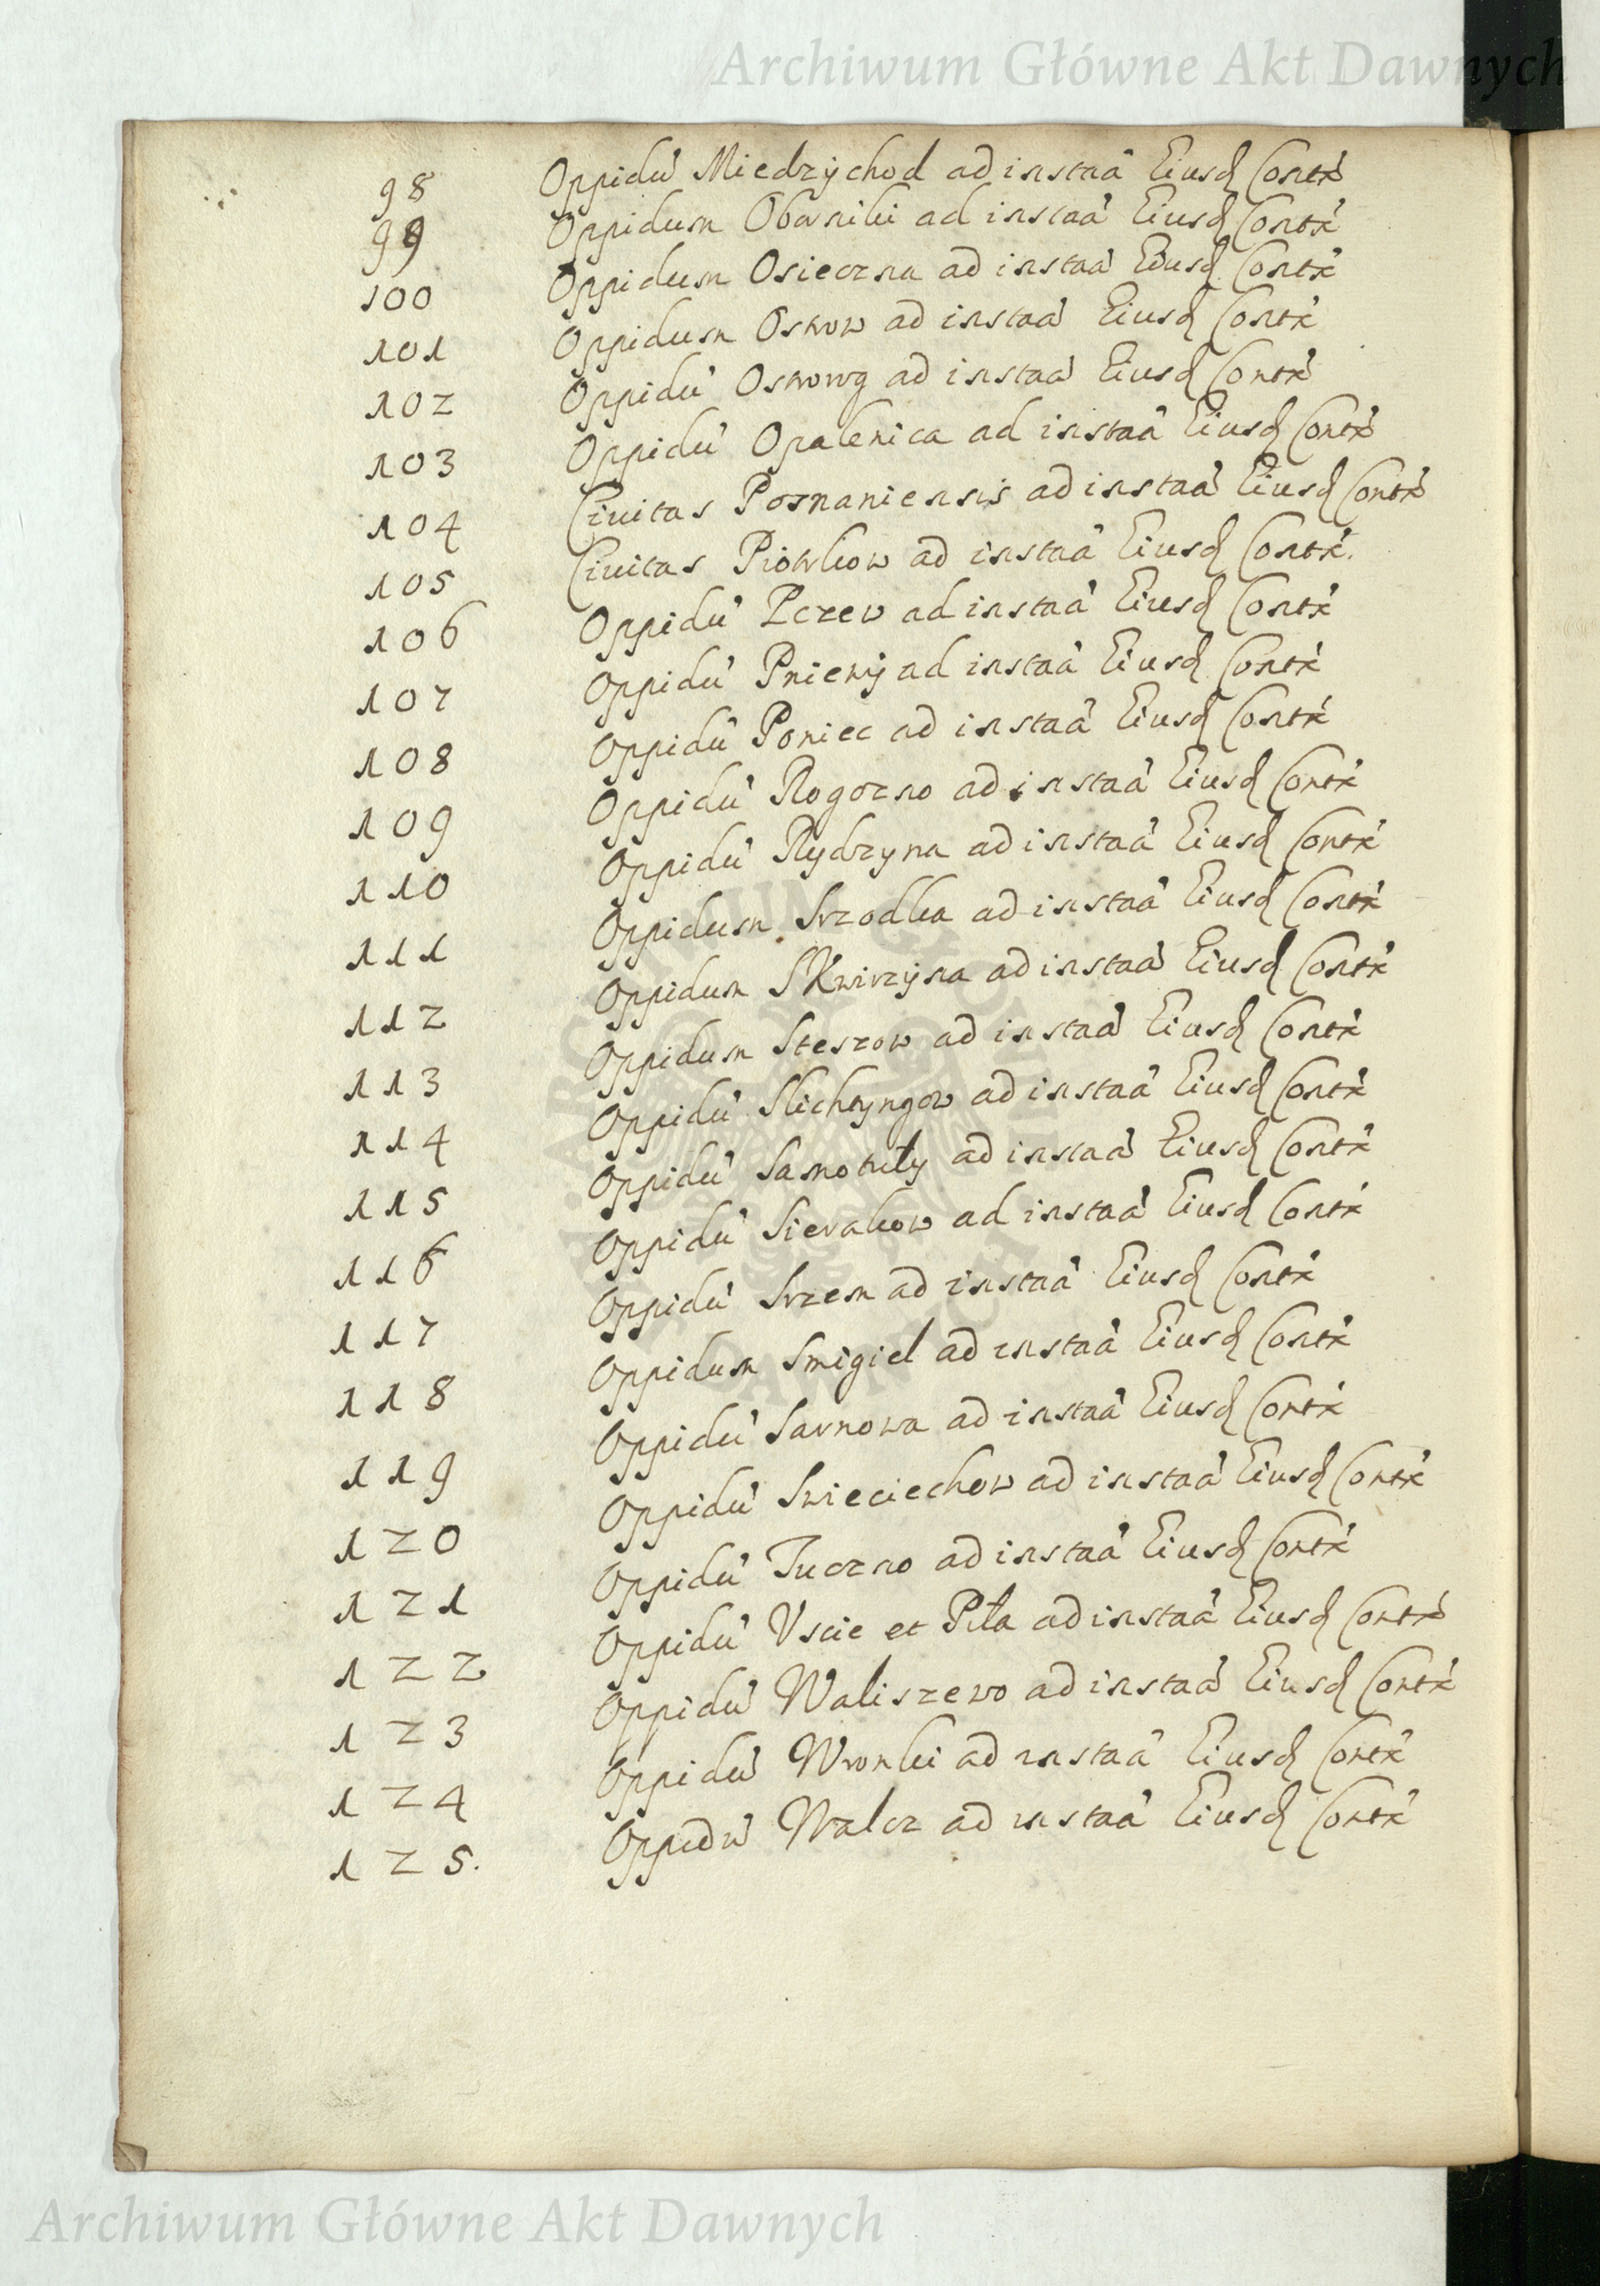 Archiwum Główne Akt Dawnych
98 Oppidu Miedzÿchod ad instaã Eiusd Contx
99 Oppidum Oborniki ad instaã Eiusd Contx
100 Oppidum Osieczna ad instaã Eiusd Contx
101 Oppidum Ostrow ad instaã Eiusd Contx
102 Oppidu Ostrorog ad instaã Eiusd Contx
103 Oppidu Opalenica ad instaã Eiusd Contx
104 Civitas Poznaniensis ad instaã Eiusd Contx
105 Civitas Piotrkow ad instaã Eiusd Contx
106 Oppidu Pczew ad instaã Eiusd Contx
107 Oppidu Pniewÿ ad instaã Eiusd Contx
108 Oppidu Poniec ad instaã Eiusd Contx
109 Oppidu Rogozno ad instaã Eiusd Contx
110 Oppidu Rydzyna ad instaã Eiusd Contx
111 Oppidum Srzodka ad instaã Eiusd Contx
112 Oppidum SKwirzÿna ad instaã Eiusd Contx
113 Oppidum Steszow ad instaã Eiusd Contx
114 Oppidu Slichtyngow ad instaã Eiusd Contx
115 Oppidu Samotuły ad instaã Eiusd Contx
116 Oppidu Sierakow ad instaã Eiusd Contx
117 Oppidu Srzem ad instaã Eiusd Contx
118 Oppidum Smigiel ad instaã Eiusd Contx
119 Oppidu Sarnowa ad instaã Eiusd Contx
120 Oppidu Swieciechow ad instaã Eiusd Contx
121 Oppidu Tuczno ad instaã Eiusd Contx
122 Oppidu Vscie et Piła ad instaã Eiusd Contx
123 Oppidu Waliszewo ad instaã Eiusd Contx
124 Oppidu Wronki ad instaã Eiusd Contx
125. Oppidu Walcz ad instaã Eiusd Contx
Archiwum Główne Akt Dawnych